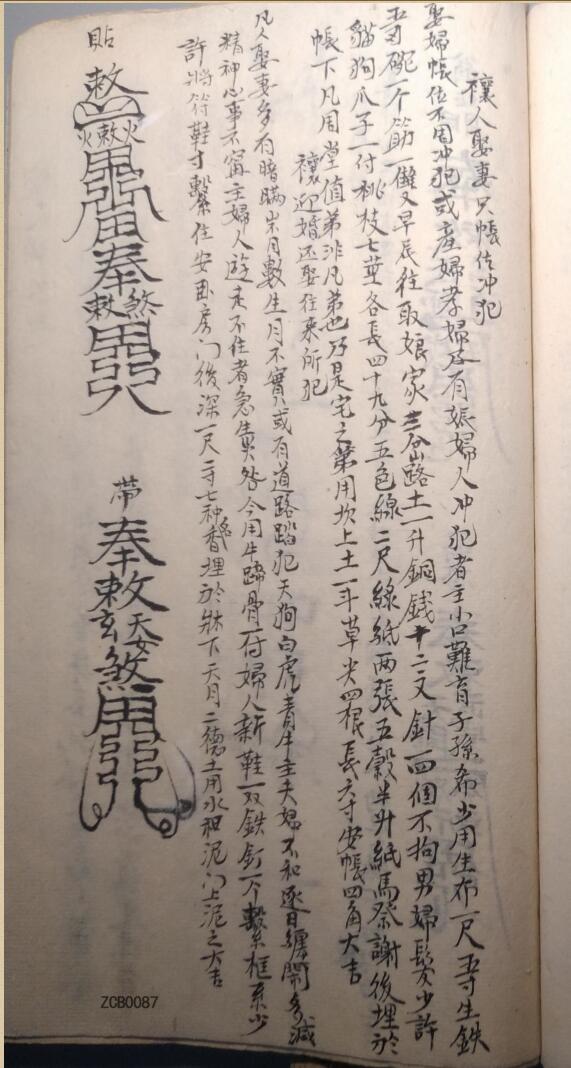 禳人娶妻只帳位冲犯
娶婦帳位不周冲犯或產婦孝婦及有娠婦人冲犯者主小口難育子孫希少用生布一尺五寸生鉄
五寸碗一个筯一雙又早辰往取娘家三谷路土一升銅錢十二文針一四個不拘男婦髮少許
貓狗爪子一付桃枝七莖各長四十九分五色線二尺線紙两張五穀半升紙馬祭謝後埋於
帳下凡用堂值弟非凡弟也乃是宅之第用坎上土一斗草尖四根長六寸安帳四角大吉
禳迎婚还娶往来所犯
凡人娶妻多有暗瞞岁月數生月不實或有道路踏犯天狗白虎青牛主夫婦不和逐日纏鬧多減
精神心事不甯主婦人遊走不住者急生災咎今用牛蹄骨一付婦人新鞋一双鉄釘一个繫系框系少
許將符鞋才繫住安卧房门後深一尺二寸七种香埋於牀下天月二德土用水和泥门上泥之大吉
貼
敕
火敕火
奉
敕煞
帶
奉敕
敕
玄天女
煞
ZCB0087